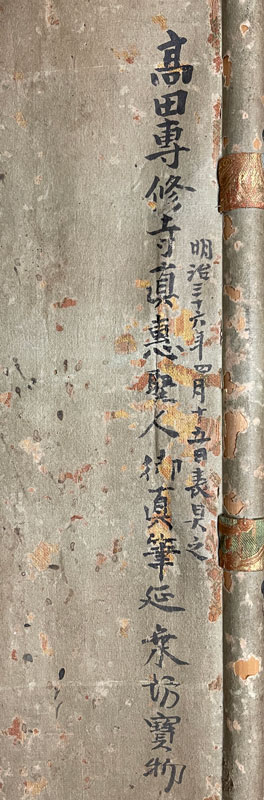 明治三十六年四月十五日表具之
高田専修寺真惠聖人御真筆延乗坊寳物